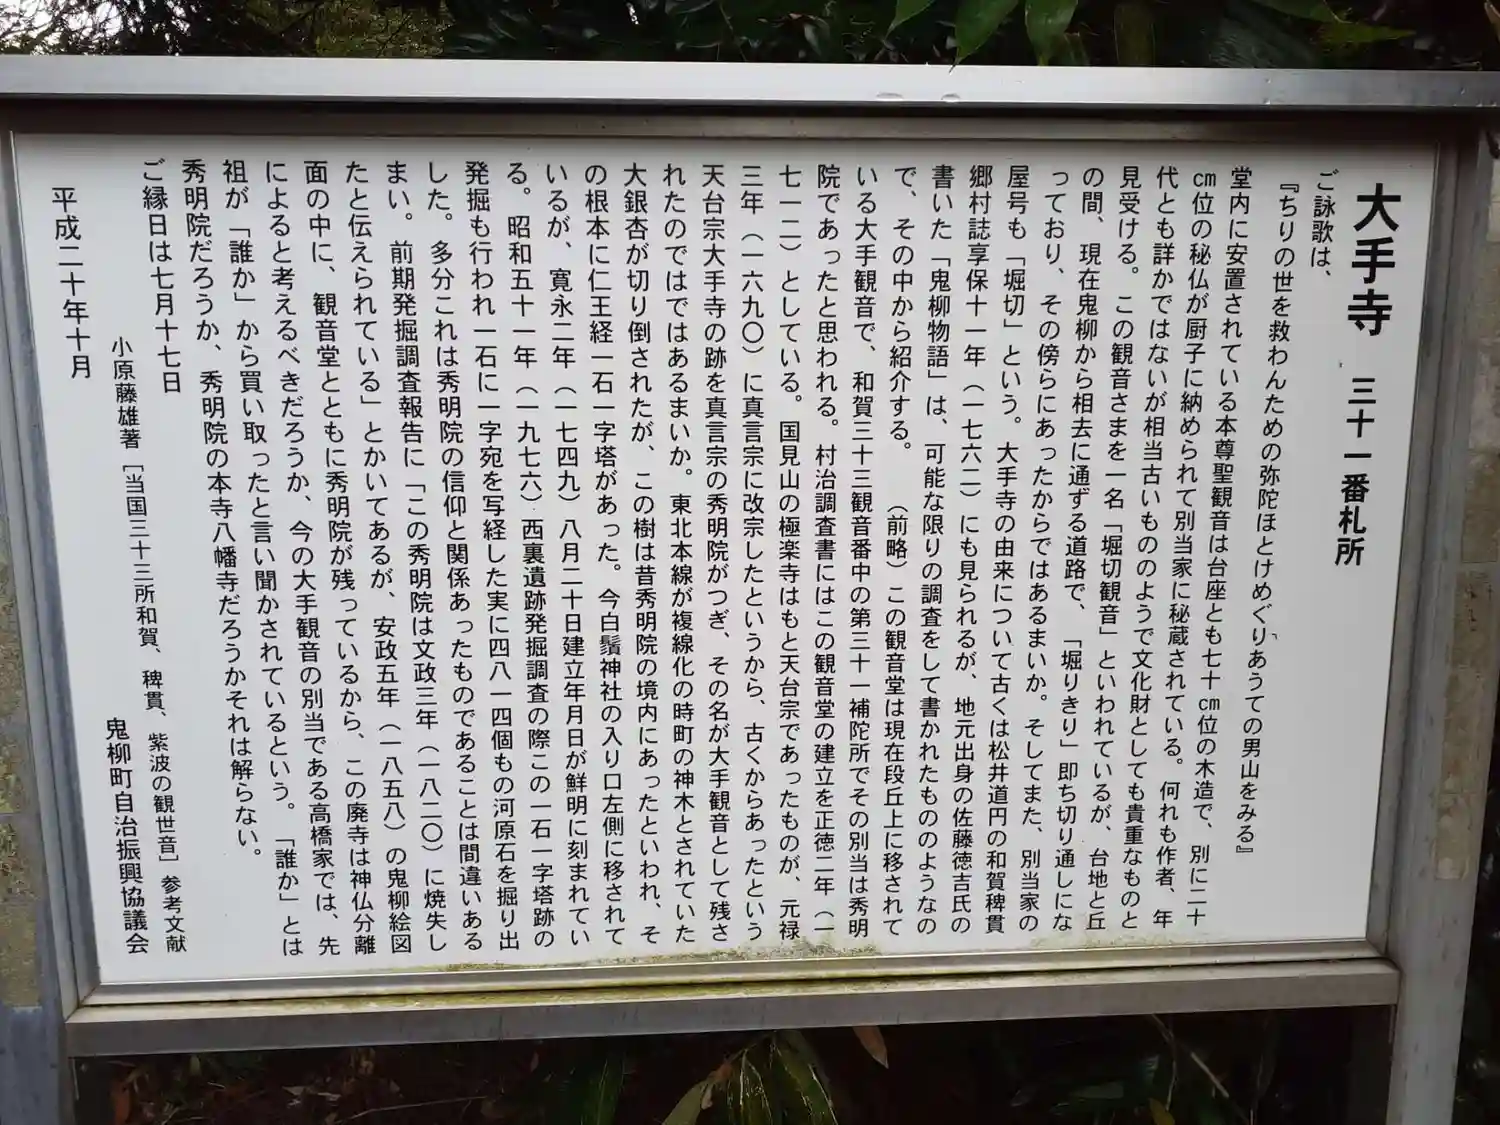 大手寺　三十一番札所
ご詠歌は、
『ちりの世を救わんための弥陀ほとけめぐりあうての男山をみる』
堂内に安置されている本尊聖観音は台座とも七十㎝位の木造で、別に二十
㎝位の秘仏が厨子に納められて別当家に秘蔵されている。何れも作者、年
代とも詳かではないが相当古いもののようで文化財としても貴重なものと
見受ける。この観音さまを一名「堀切観音」といわれているが、台地と丘
の間、現在鬼柳から相去に通ずる道路で、「堀りきり」即ち切り通しにな
っており、その傍らにあったからではあるまいか。そしてまた、別当家の
屋号も「堀切」という。大手寺の由来について古くは松井道円の和賀稗貫
郷村誌享保十一年（一七六二）にも見られるが、地元出身の佐藤徳吉氏の
書いた「鬼柳物語」は、可能な限りの調査をして書かれたもののようなの
で、その中から紹介する。　（前略）この観音堂は現在段丘上に移されて
いる大手観音で、和賀三十三観音番中の第三十一補陀所でその別当は秀明
院であったと思われる。村治調査書にはこの観音堂の建立を正徳二年（一
七一二）としている。国見山の極楽寺はもと天台宗であったものが、元禄
三年（一六九〇）に真言宗に改宗したというから、古くからあったという
天台宗大手寺の跡を真言宗の秀明院がつぎ、その名が大手観音として残さ
れたのではではあるまいか。東北本線が複線化の時町の神木とされていた
大銀杏が切り倒されたが、この樹は昔秀明院の境内にあったといわれ、そ
の根本に仁王経一石一字塔があった。今白鬚神社の入り口左側に移されて
いるが、寛永二年（一七四九）八月二十日建立年月日が鮮明に刻まれてい
る。昭和五十一年（一九七六）西裏遺跡発掘調査の際この一石一字塔跡の
発掘も行われ一石に一字宛を写経した実に四八一四個もの河原石を掘り出
した。多分これは秀明院の信仰と関係あったものであることは間違いある
まい。前期発掘調査報告に「この秀明院は文政三年（一八二〇）に焼失し
たと伝えられている」とかいてあるが、安政五年（一八五八）の鬼柳絵図
面の中に、観音堂とともに秀明院が残っているから、この廃寺は神仏分離
によると考えるべきだろうか、今の大手観音の別当である高橋家では、先
祖が「誰か」から買い取ったと言い聞かされているという。「誰か」とは
秀明院だろうか、秀明院の本寺八幡寺だろうかそれは解らない。
ご縁日は七月十七日
小原藤雄著［当国三十三所和賀、稗貫、紫波の観世音］参考文献
平成二十年十月
鬼柳町自治振興協議会